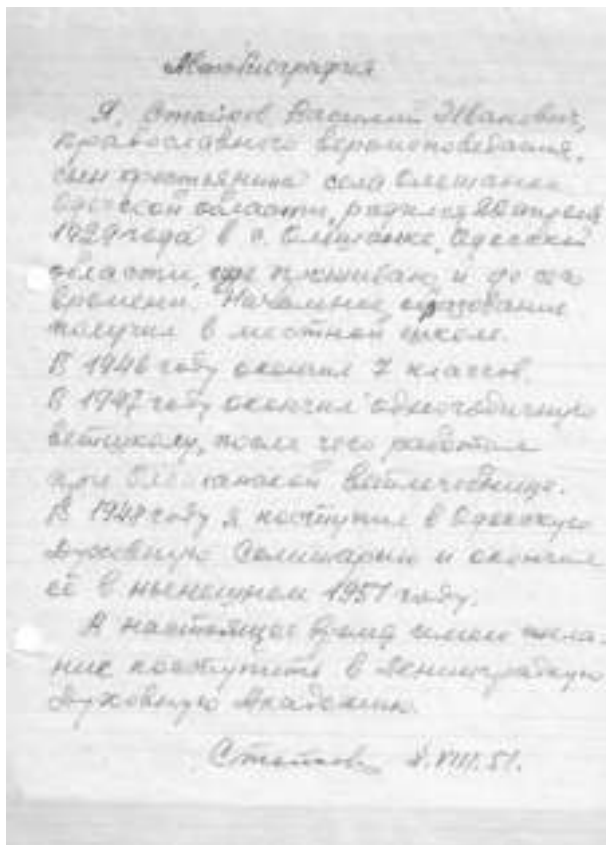 Автобиография
Я, Стойков Василий Иванович,
православного вероисповедания,
сын крестьянина села
Одесской области, родился 20 апреля
1929 года в с. Одесской
области, где проживаю и до сего
времени. Начальное образование
получил в местной школе.
В 1946 году окончил 7 классов.
В 1947 году окончил одногодичную
ветшколу, после чего работал
при ветлечебнице.
В 1948 году я поступил в Одесскую
Духовную Семинарию и окончил
её в нынешнем 1951 году.
В настоящее время имею жела-
ние поступить в Ленинградскую
Духовную Академию.
Стойков .VIII.51.